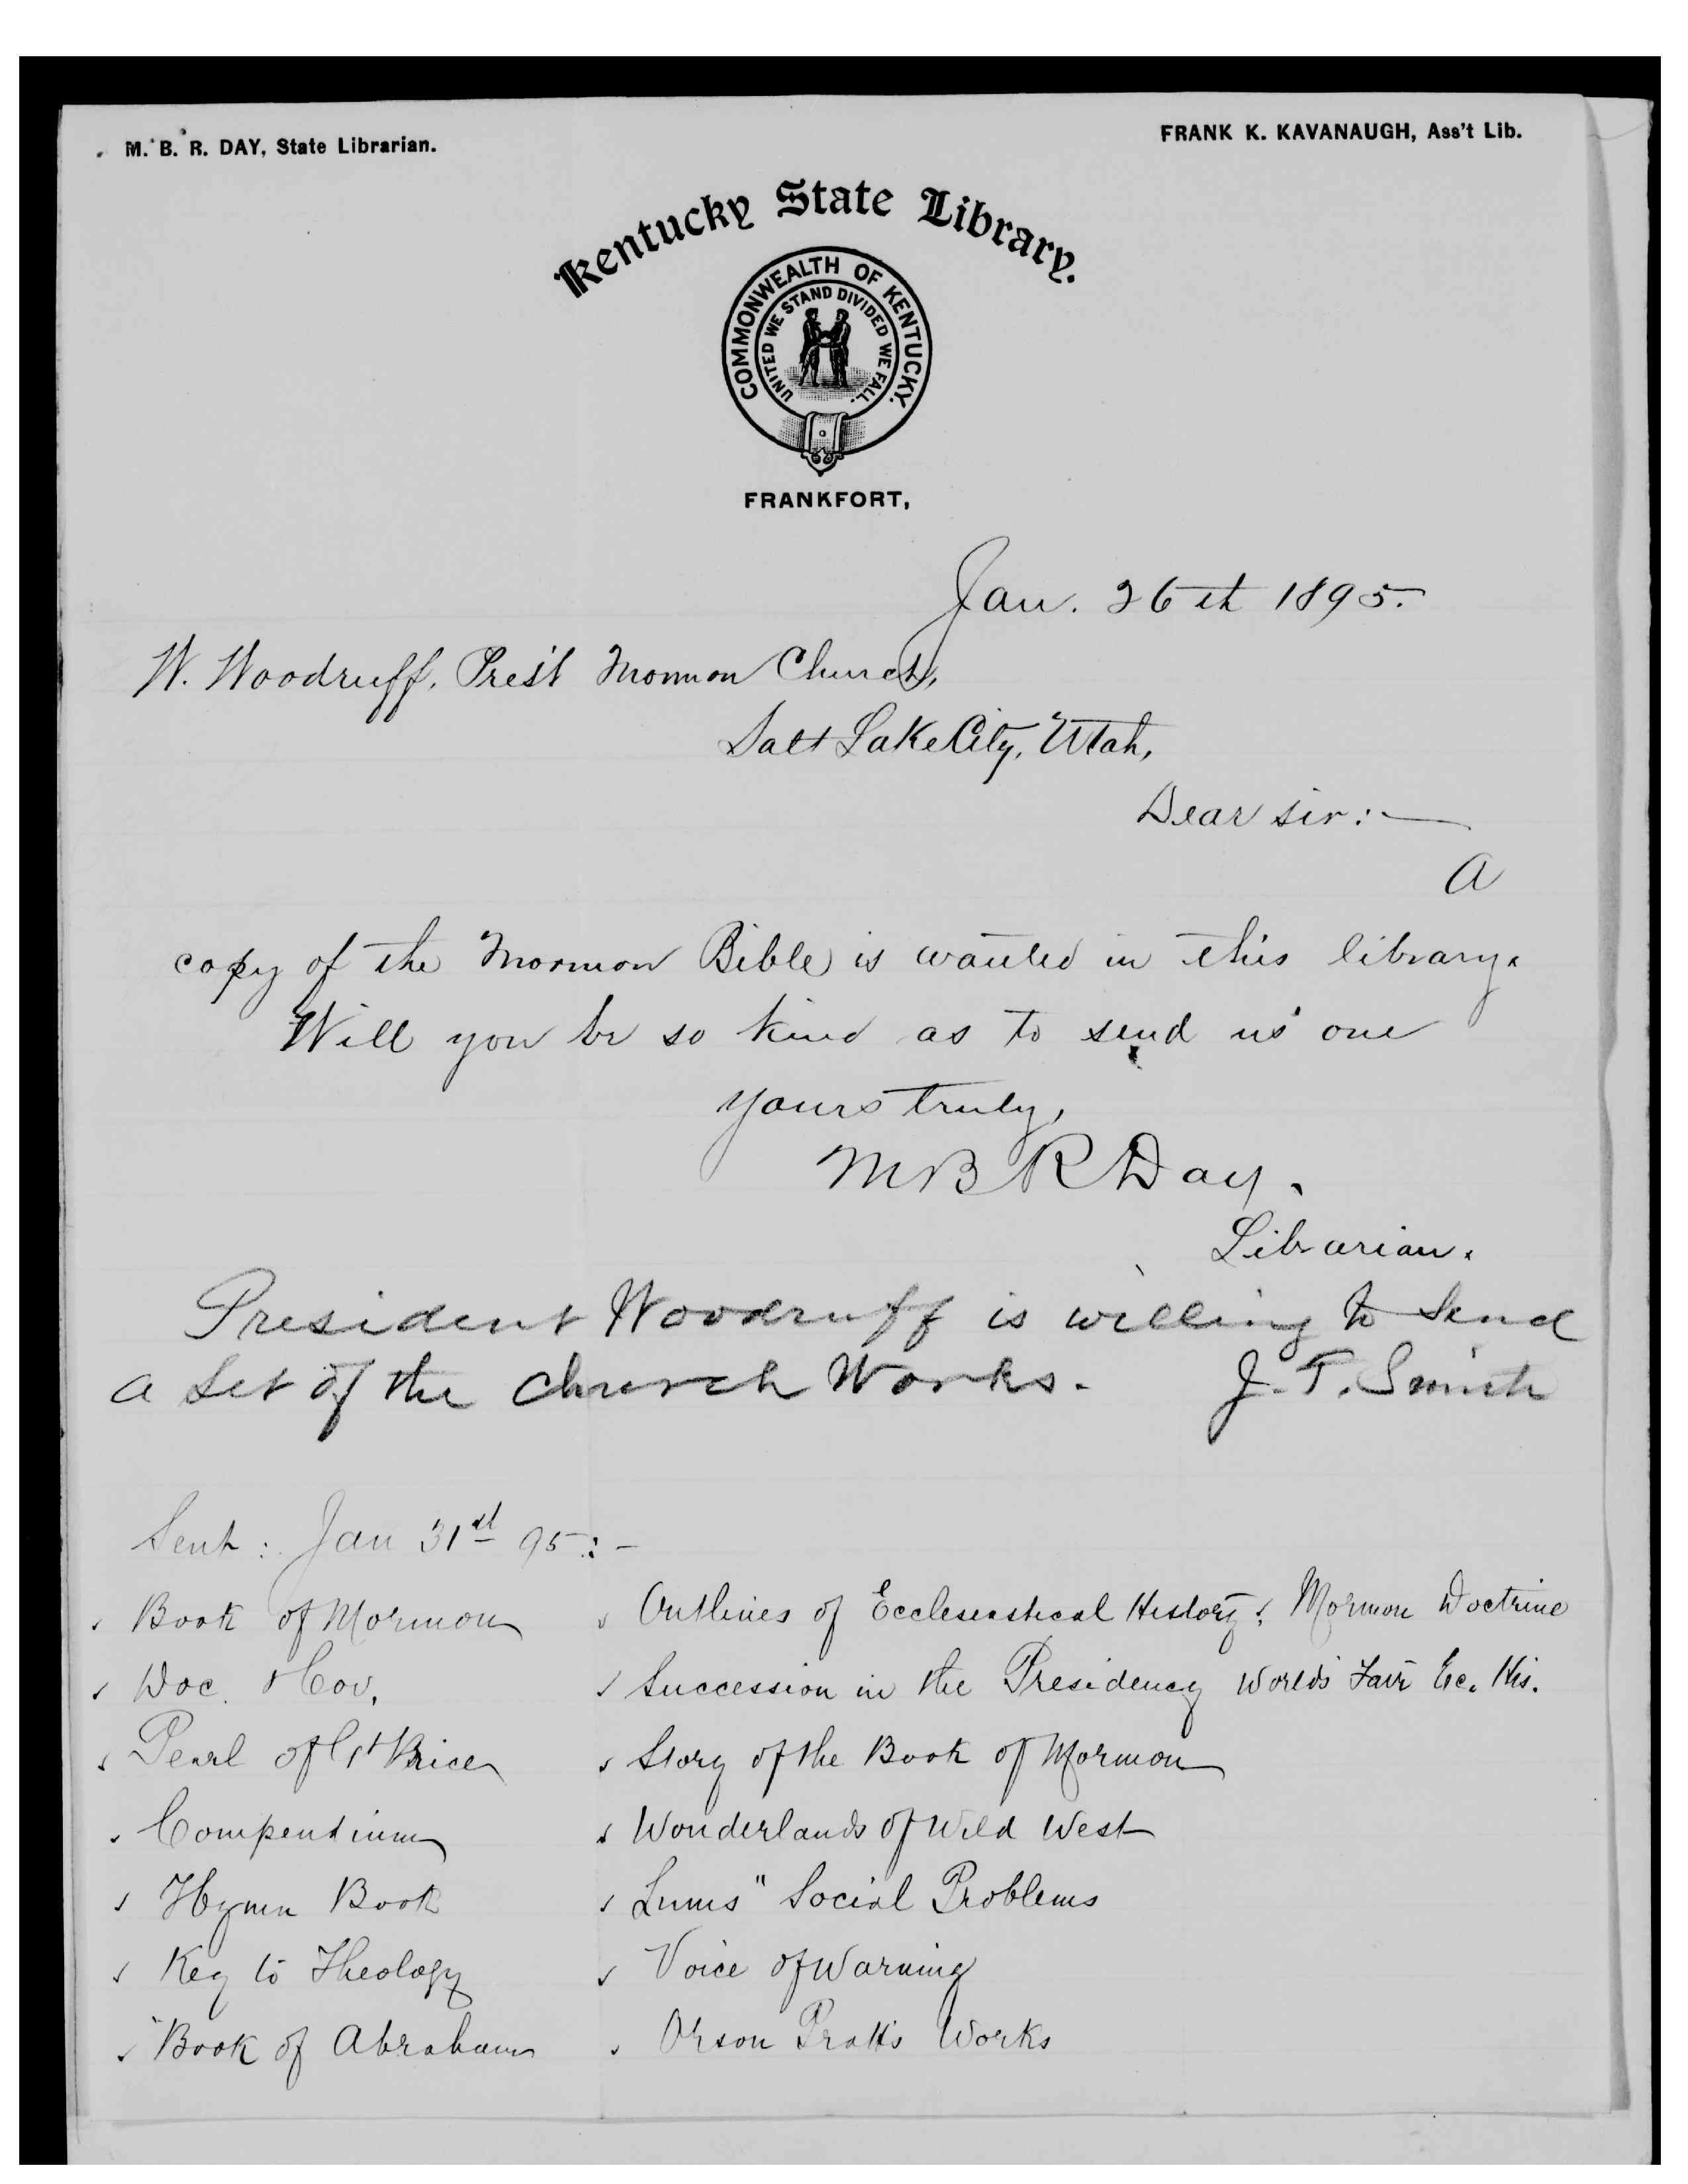 M. B. R. DAY, State Librarian.
FRANK K. KAVANAUGH, Ass't Lib.
Kentucky State Library.
COMMONWEALTH OF KENTUCKY.
UNITED WE STAND DIVIDED WE FALL.
FRANKFORT,
Jan. 26th 1895.
W. Woodruff, Pres't Mormon Church,
Salt Lake City, Utah,
Dear sir:—
A
copy of the Mormon Bible is wanted in this library.
Will you be so kind as to send us one
yours truly,
M B R Day.
Librarian.
President Woodruff is willing to send
a set of the church Works. J. F. Smith
Sent: Jan 31st 95:-
Book of Mormon
Doc. & Cov.
Pearl of Gt Price
Compendium
Hymn Book
Key to Theology
Book of Abraham
Outlines of Ecclesiastical History, Mormon Doctrine
Succession in the Presidency World's Fair Ec. His.
Story of the Book of Mormon
Wonderlands of Wild West
Lums" Social Problems
Voice of Warning
Orson Pratt's Works